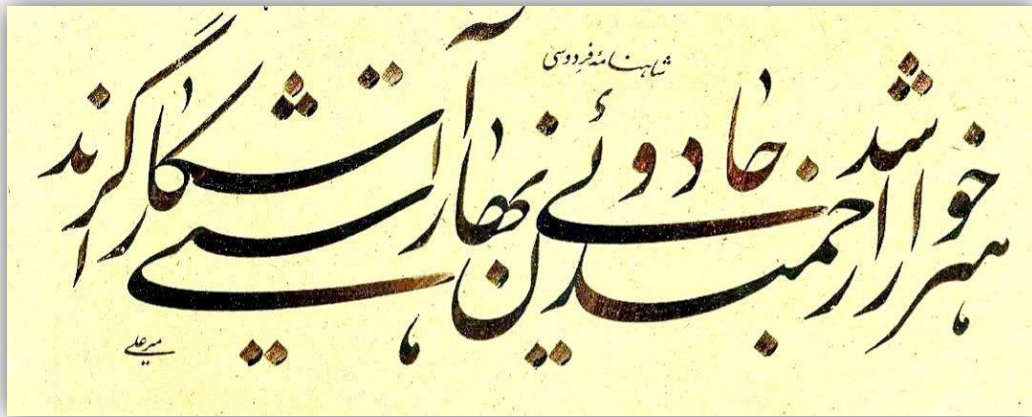 شاهنامهٔ فردوسی
هنر خوار شد جادوئی ارجمند
نهان راستی آشکارا گزند
میرعلی